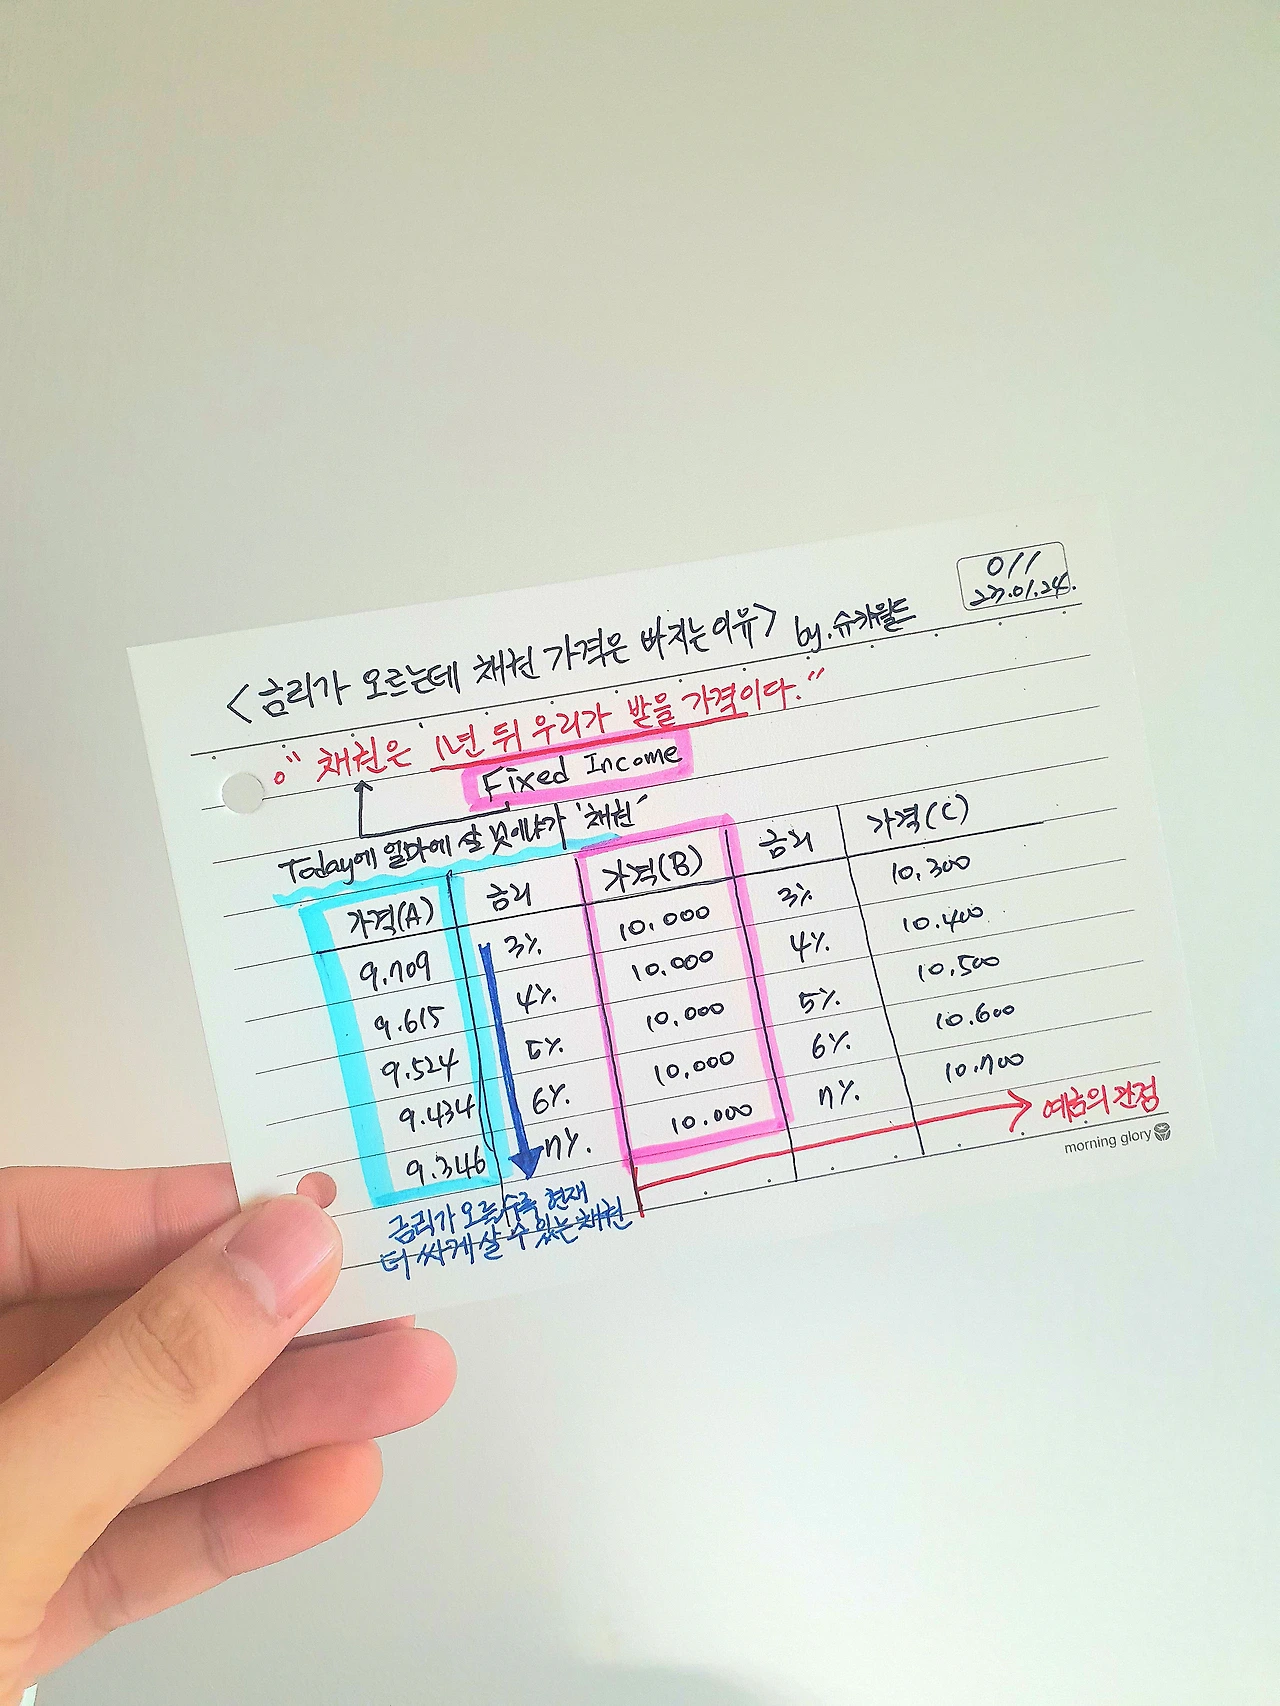 011
23.01.24.
<금리가 오르는데 채권 가격은 빠지는 이유> by.슈카월드
"채권은 1년 뒤 우리가 받을 가격이다."
Fixed Income
Today에 얼마에 살 것이냐가 '채권'
가격(A) 금리 가격(B) 금리 가격(C)
9.709 3% 10.000 3% 10.300
9.615 4% 10.000 4% 10.400
9.524 5% 10.000 5% 10.500
9.434 6% 10.000 6% 10.600
9.346 7% 10.000 7% 10.700
예금의 관점
금리가 오를수록 현재
더 싸게 살 수 있는 채권
morning glory